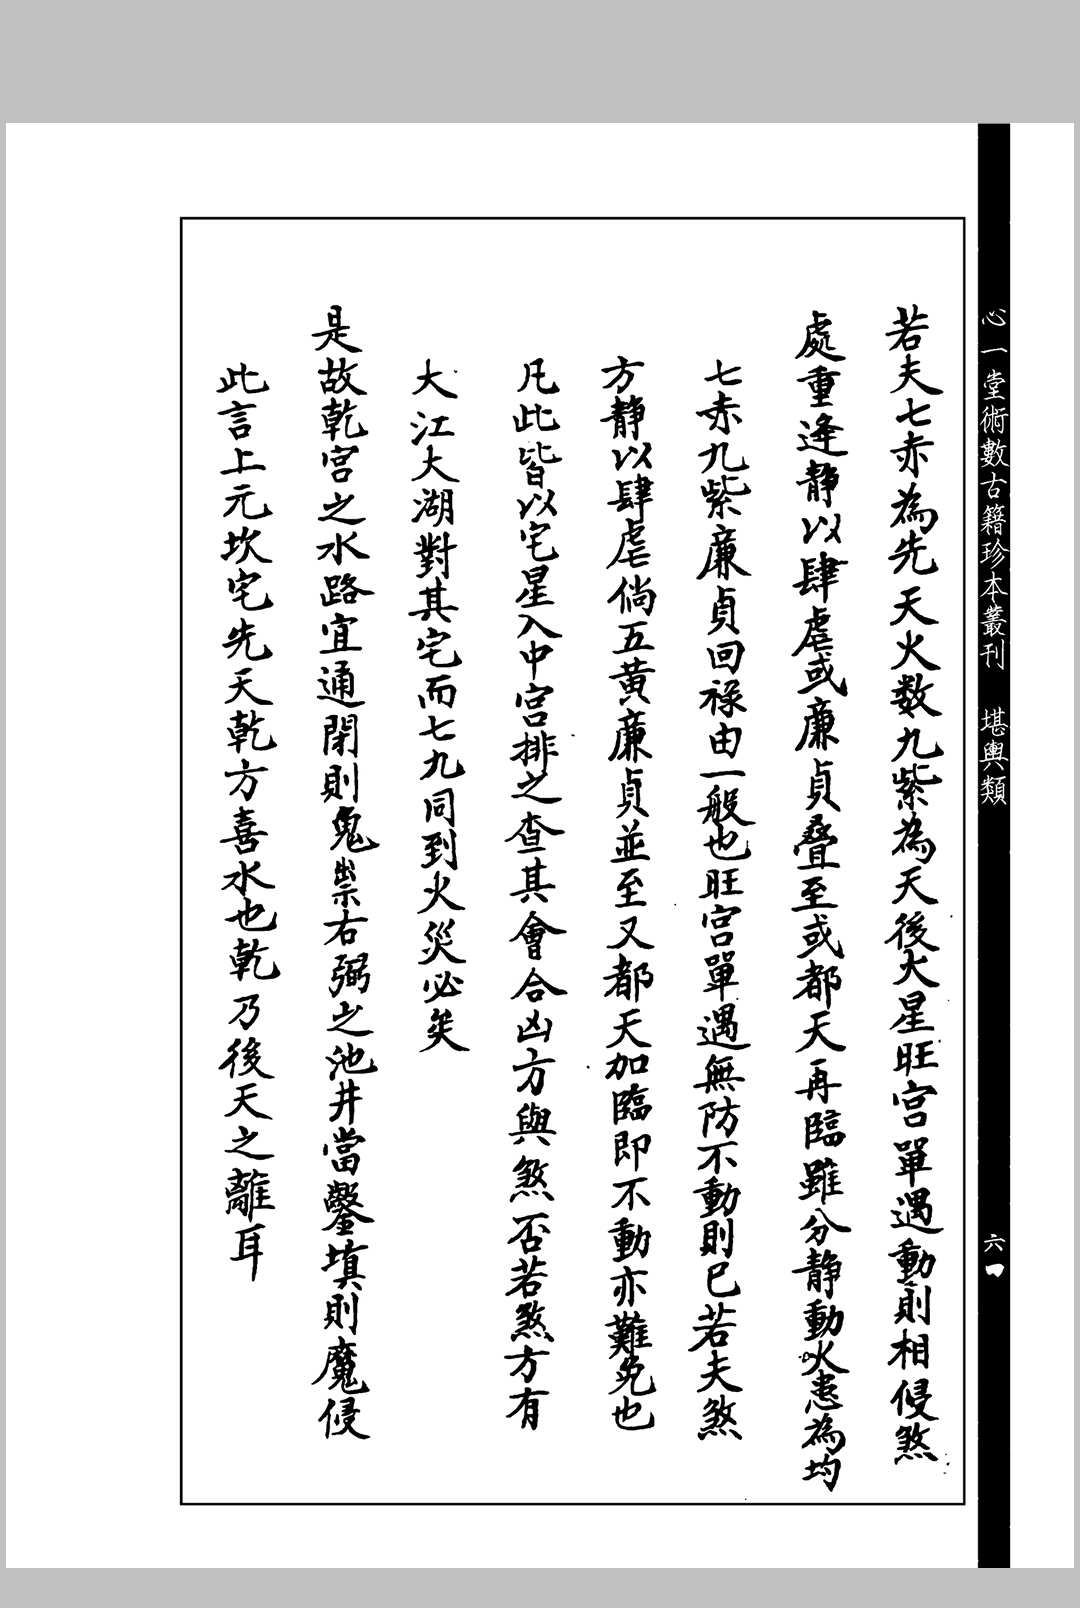 心一堂術數古籍珍本叢刊 堪輿類
六四
若夫七赤為先天火数九紫為天後大星旺宮單遇動則相侵煞
處重逢静以肆虐或廉貞叠至或都天再臨雖分静動火患為均
七赤九紫廉貞回祿由一般也旺宮單遇無防不動則已若夫煞
方静以肆虐倘五黄廉貞並至又都天加臨即不動亦難免也
凡此皆以宅星入中宮排之查其會合凶方與煞否若煞方有
大江大湖對其宅而七九同到火災必矣
是故乾宮之水路宜通閉則鬼祟右弼之池井當鑿填則魔侵
此言上元坎宅先天乾方喜水也乾乃後天之離耳